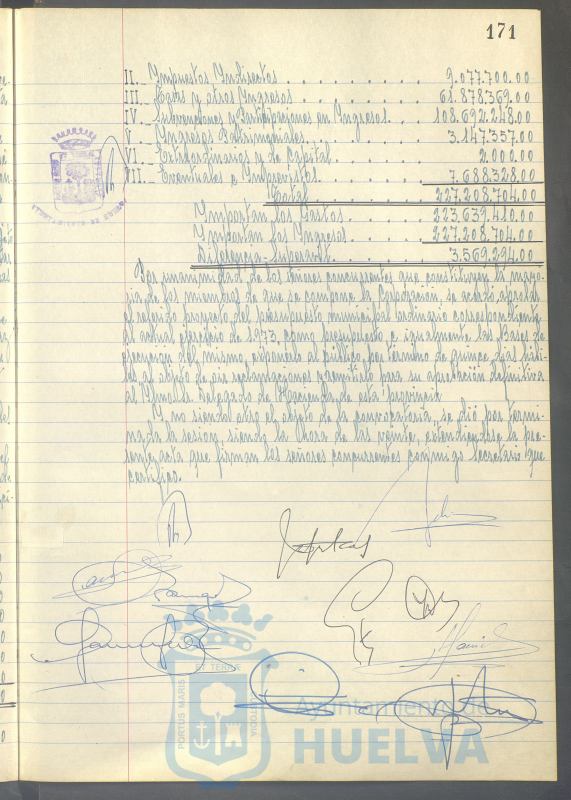 171
II.- Impuestos Indirectos . . . . . . . . . 9.077.700.00
III.- Tasas y otros Ingresos . . . . . . . . 61.878.369.00
IV.- Subvenciones y Participaciones en Ingresos. 108.692.248.00
V.- Ingresos Patrimoniales. . . . . . . . 3.147.357.00
VI.- Extraordinarios y de Capital. . . . . . . 2.000.00
VII.- Eventuales e Imprevistos. . . . . . . . 7.688.328.00
Total. . . . . . . 227.208.704.00
Importan los Gastos. . . . . . 223.639.410.00
Importan los Ingresos. . . . . 227.208.704.00
Diferencia-Superavit. . . . . 3.569.294.00
Por unanimidad de los señores concurrentes que constituyen la mayo-
ria de los miembros de que se compone la Corporación, se acordó aprobar
el referido proyecto del presupuesto municipal ordinario correspondiente
al actual ejercicio de 1973, como presupuesto e igualmente las Bases de
ejecucion del mismo, exponerlo al público por termino de quince dias habi-
les al objeto de oir reclamaciones y remitirlo para su aprobación definitiva
al Ilmo Sr. Delegado de Hacienda de esta provincia.
Y no siendo otro el objeto de la convocatoria, se dió por termi-
nada la sesion, siendo la hora de las veinte, extendiendose la pre-
sente acta que firman los señores concurrentes conmigo Secretario que
certifico.
PORTUS MARIS ET TERRAE CUSTODIA
Ayuntamiento de
HUELVA